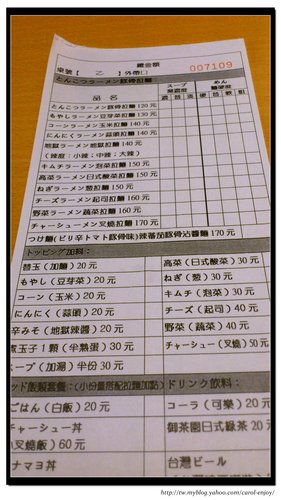 鐘金額
桌號【 乙 】外帶【 】
007109
とんこつラーメン豚骨拉麵：
スープ めん
湯濃度 麵硬度
品名 濃 普 淡 硬 普 軟 粗
とんこつラーメン豚骨拉麵 120 元
もやしラーメン豆芽菜拉麵 130 元
コーンラーメン玉米拉麵 140 元
にんにくラーメン蒜頭拉麵 140 元
地獄ラーメン地獄拉麵 140 元
（辣度：小辣；中辣；大辣）
キムチラーメン泡菜拉麵 150 元
高菜ラーメン日式酸菜拉麵 150 元
ねぎラーメン葱拉麵 150 元
チーズラーメン起司拉麵 160 元
野菜ラーメン蔬菜拉麵 160 元
チャーシューメン叉燒拉麵 170 元
つけ麵(ピリ辛トマト豚骨味)辣番茄豚骨沾醬麵 170 元
トッピング加料：
替玉（加麵）20 元 高菜（日式酸菜）30 元
もやし（豆芽菜）20 元 ねぎ（葱）30 元
コーン（玉米）20 元 キムチ（泡菜）30 元
にんにく（蒜頭）20 元 チーズ（起司）40 元
辛みそ（地獄辣醬）20 元 野菜（蔬菜）40 元
煮玉子 1 顆（半熟蛋）30 元 チャーシュー（叉燒）50 元
スープ（加湯）半份 30 元
ッド飯類套餐：(小份量搭配拉麵加點) ドリンク飲料：
ごはん（白飯）20 元 コーラ（可樂）20 元
チャーシュー丼 御茶園日式綠茶 20 元
小叉燒飯）60 元
ナマヨ丼 台灣ビール
http://tw.myblog.yahoo.com/carol-enjoy/